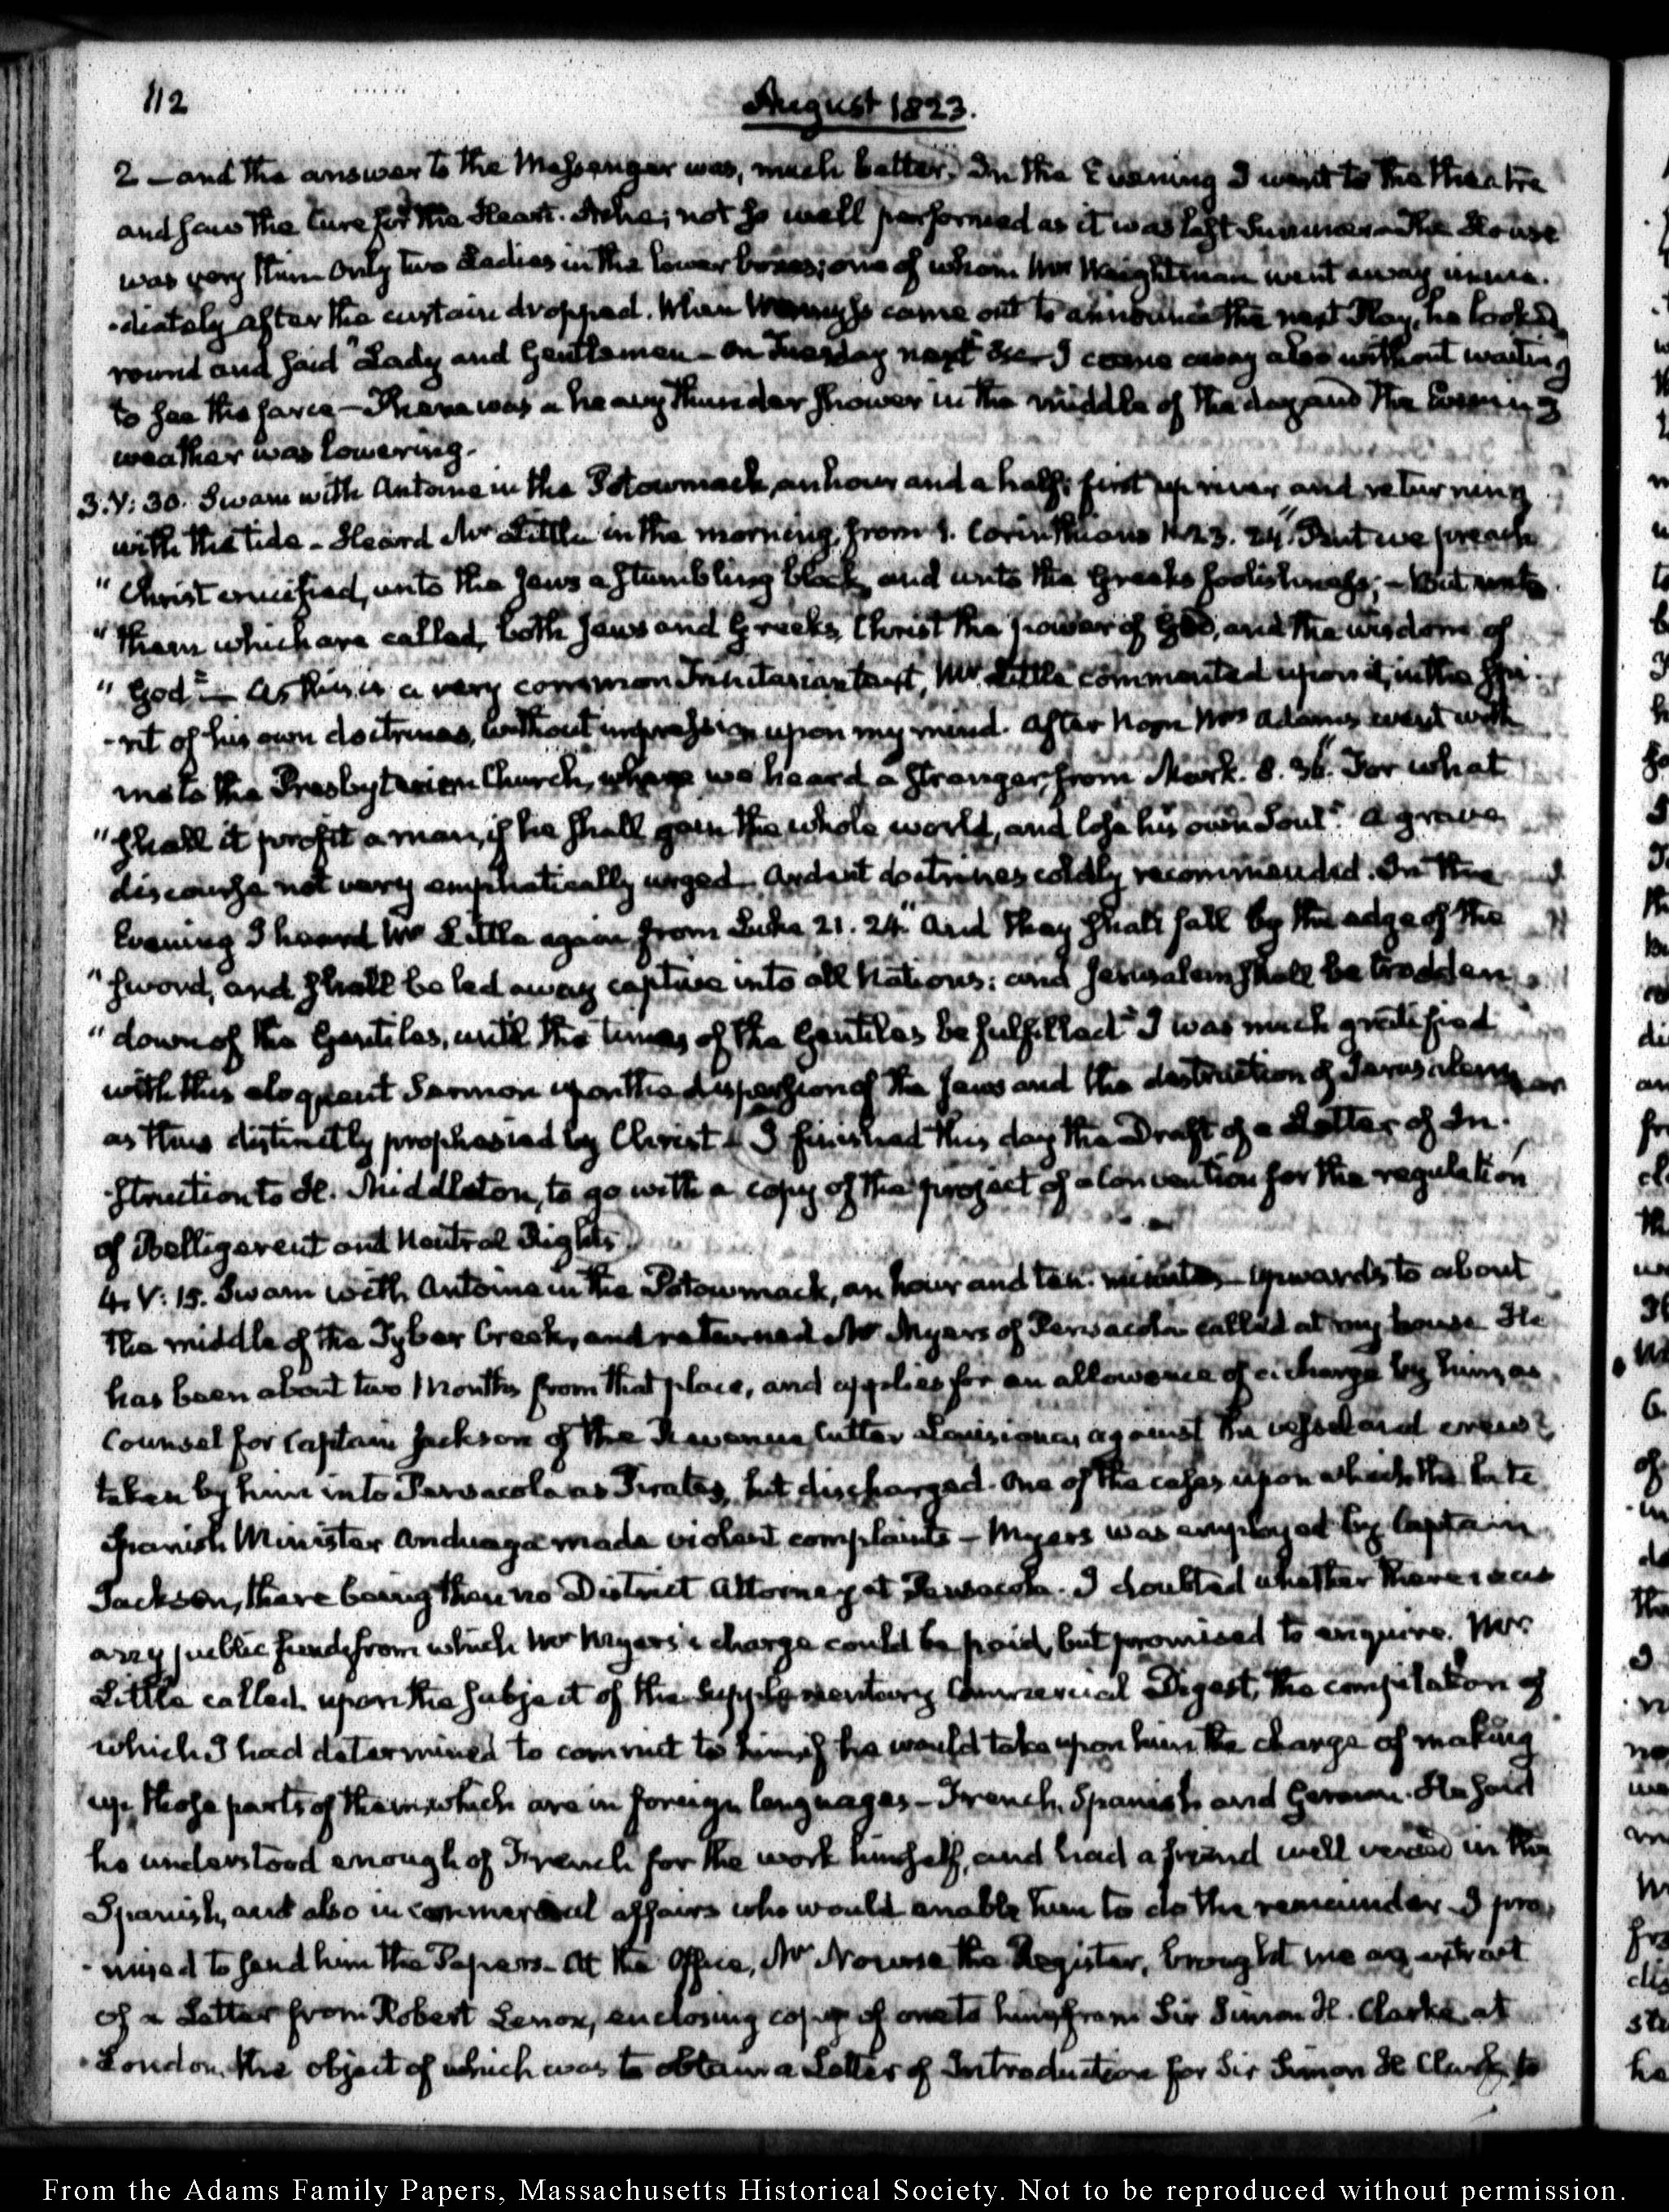 112
August 1823.
2 — and the answer to the Messenger was, much better. In the Evening I went to the theatre
and saw the Cure for the Heart-Ache; not so well performed as it was last Summer — The House
was very thin — only two Ladies in the lower boxes; one of whom Mrs Weightman went away imme-
-diately after the curtain dropped. When Wemyss came out to announce the next Play, he looked
round and said "Lady and Gentlemen — on Tuesday next &c — I came away also without waiting
to see the farce — There was a heavy thunder shower in the middle of the day and the Evening
weather was lowering.
3. V: 30. Swam with Antoine in the Potowmack, an hour and a half; first up river and returning
with the tide — Heard Mr Little in the morning, from 1. Corinthians 1. 23. 24. "But we preach
" Christ crucified, unto the Jews a stumbling block, and unto the Greeks foolishness; — But unto
" them which are called, both Jews and Greeks, Christ the power of God, and the wisdom of
" God" — As this is a very common Trinitarian text, Mr Little commented upon it, in the spi-
-rit of his own doctrines, without impression upon my mind. After Noon Mrs Adams went with
me to the Presbyterian Church, where we heard a stranger, from Mark. 8. 36. "For what
" shall it profit a man, if he shall gain the whole world, and lose his own Soul". A grave
discourse not very emphatically urged. Ardent doctrines coldly recommended. In the
Evening I heard Mr Little again from Luke 21. 24. "And they shall fall by the edge of the
" sword, and shall be led away captive into all Nations: and Jerusalem shall be trodden
" down of the Gentiles, until the times of the Gentiles be fulfilled" I was much gratified
with this eloquent Sermon upon the dispersion of the Jews and the destruction of Jerusalem
as thus distinctly prophesied by Christ — I finished this day the Draft of a Letter of In-
-struction to H. Middleton, to go with a copy of the project of a Convention for the regulation
of Belligerent and Neutral Rights.
4. V: 15. Swam with Antoine in the Potowmack, an hour and ten minutes — upwards to about
the middle of the Tyber Creek, and returned. Mr Myers of Pensacola called at my house. He
has been about two Months from that place, and applies for an allowance of a charge by him, as
Counsel for Captain Jackson of the Revenue Cutter Louisiana, against the vessel and crews
taken by him into Pensacola as Pirates, but discharged. One of the cases upon which the late
Spanish Minister Anduaga made violent complaints — Myers was employed by Captain
Jackson, there being then no District Attorney at Pensacola. I doubted whether there was
any public funds from which Mr Myers's charge could be paid, but promised to enquire. Mr
Little called upon the subject of the Supplementary Commercial Digest, the compilation of
which I had determined to commit to him if he would take upon him the charge of making
up those parts of them, which are in foreign languages — French, Spanish and German. He said
he understood enough of French for the work himself, and had a friend well versed in the
Spanish, and also in commercial affairs who would enable him to do the remainder — I pro-
-mised to send him the Papers — At the Office, Mr Nourse the Register, brought me an extract
of a Letter from Robert Lenox, enclosing copy of one to him, from Sir Simon H. Clarke, at
London, the object of which was to obtain a Letter of Introduction for Sir Simon H Clarke to
From the Adams Family Papers, Massachusetts Historical Society. Not to be reproduced without permission.